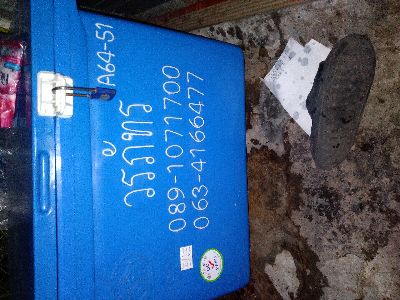 A64-51
วรภัทร
089-1071700
063-4166477